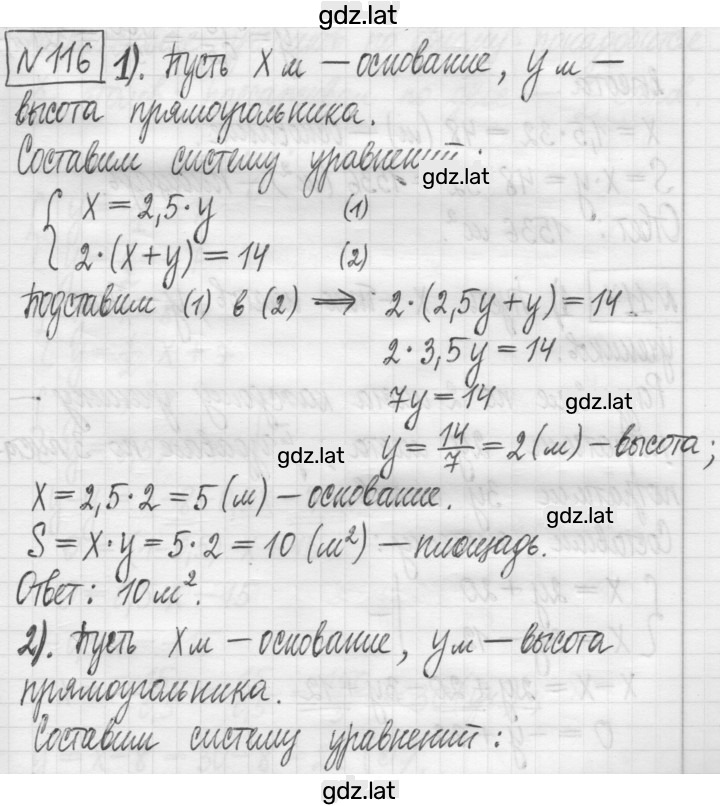 gdz.lat
№116 1). Пусть X м – основание, y м –
высота прямоугольника.
Составим систему уравнений:
gdz.lat
{ X = 2,5·y (1)
2·(X+y) = 14 (2)
Подставим (1) в (2) ⟹ 2·(2,5y+y) = 14
2·3,5y = 14
7y = 14
gdz.lat
y = 14/7 = 2 (м) – высота;
gdz.lat
X = 2,5·2 = 5 (м) – основание.
gdz.lat
S = X·y = 5·2 = 10 (м²) – площадь.
Ответ: 10 м².
2). Пусть X м – основание, y м – высота
прямоугольника.
Составим систему уравнений:
gdz.lat